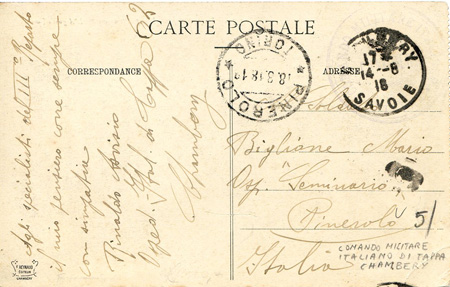 CARTE POSTALE
CORRESPONDANCE
ADRESSE
17
14-8
18
SAVOIE
PINEROLO
TORINO
18.3.18.12
agli specialisti del III° Reparto
il mio pensiero come sempre
con simpatia
Rinaldo
Osped. Ital. di Tappa 62
Chambery
Bigliane Mario
Osp. "Seminario"
Pinerolo
Italia
51
COMANDO MILITARE
ITALIANO DI TAPPA
CHAMBERY
REYNAUD
EDITEUR
CHAMBERY